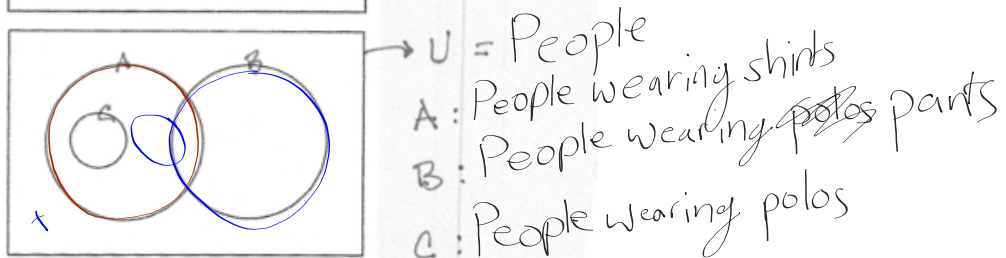 A B
C
U = People
A: People wearing shirts
B: People wearing polos pants
C: People wearing polos